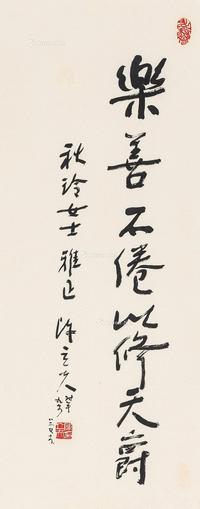 樂善不倦以修天爵
秋玲女士雅正 陳立夫